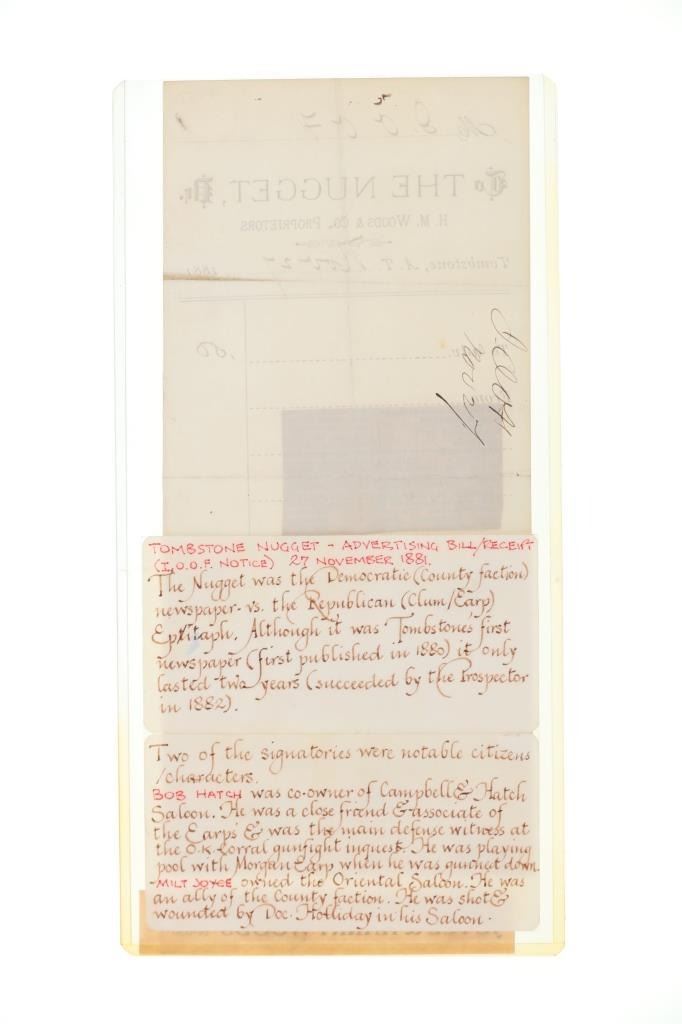 To THE NUGGET, Dr.
H. M. WOODS & CO., PROPRIETORS.
Tombstone, A. T. Nov 27 1881
50
Nov 27
TOMBSTONE NUGGET - ADVERTISING BILL/RECEIPT
(I.O.O.F. NOTICE) 27 NOVEMBER 1881.
The Nugget was the Democratic (County faction)
newspaper - vs. the Republican (Clum/Earp)
Epitaph. Although it was Tombstones first
newspaper (first published in 1880) it only
lasted two years (succeeded by the Prospector
in 1882).
Two of the signatories were notable citizens
/characters.
BOB HATCH was co-owner of Campbell & Hatch
Saloon. He was a close friend & associate of
the Earps & was the main defense witness at
the O.K. Corral gunfight inquest. He was playing
pool with Morgan Earp when he was gunned down.
MILT JOYCE owned the Oriental Saloon. He was
an ally of the County faction. He was shot &
wounded by Doc. Holliday in his Saloon.